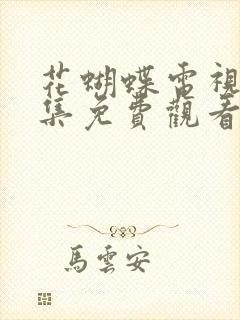 花蝴蝶電視
集免費觀看
馬雲安